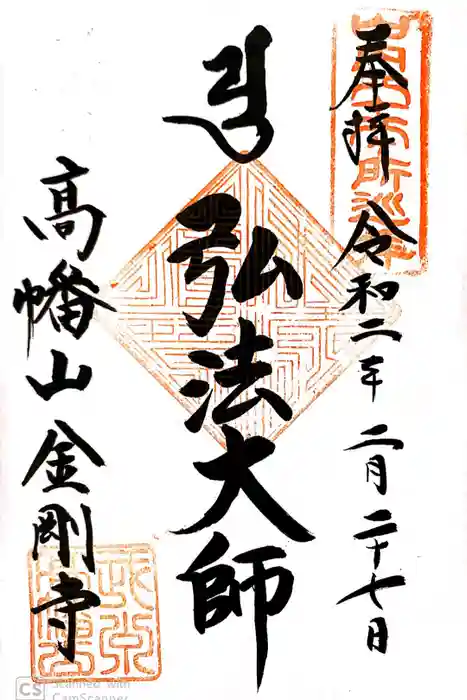 奉拝 令和二年 二月二十七日
弘法大師
高幡山 金剛寺
CS Scanned with
CamScanner